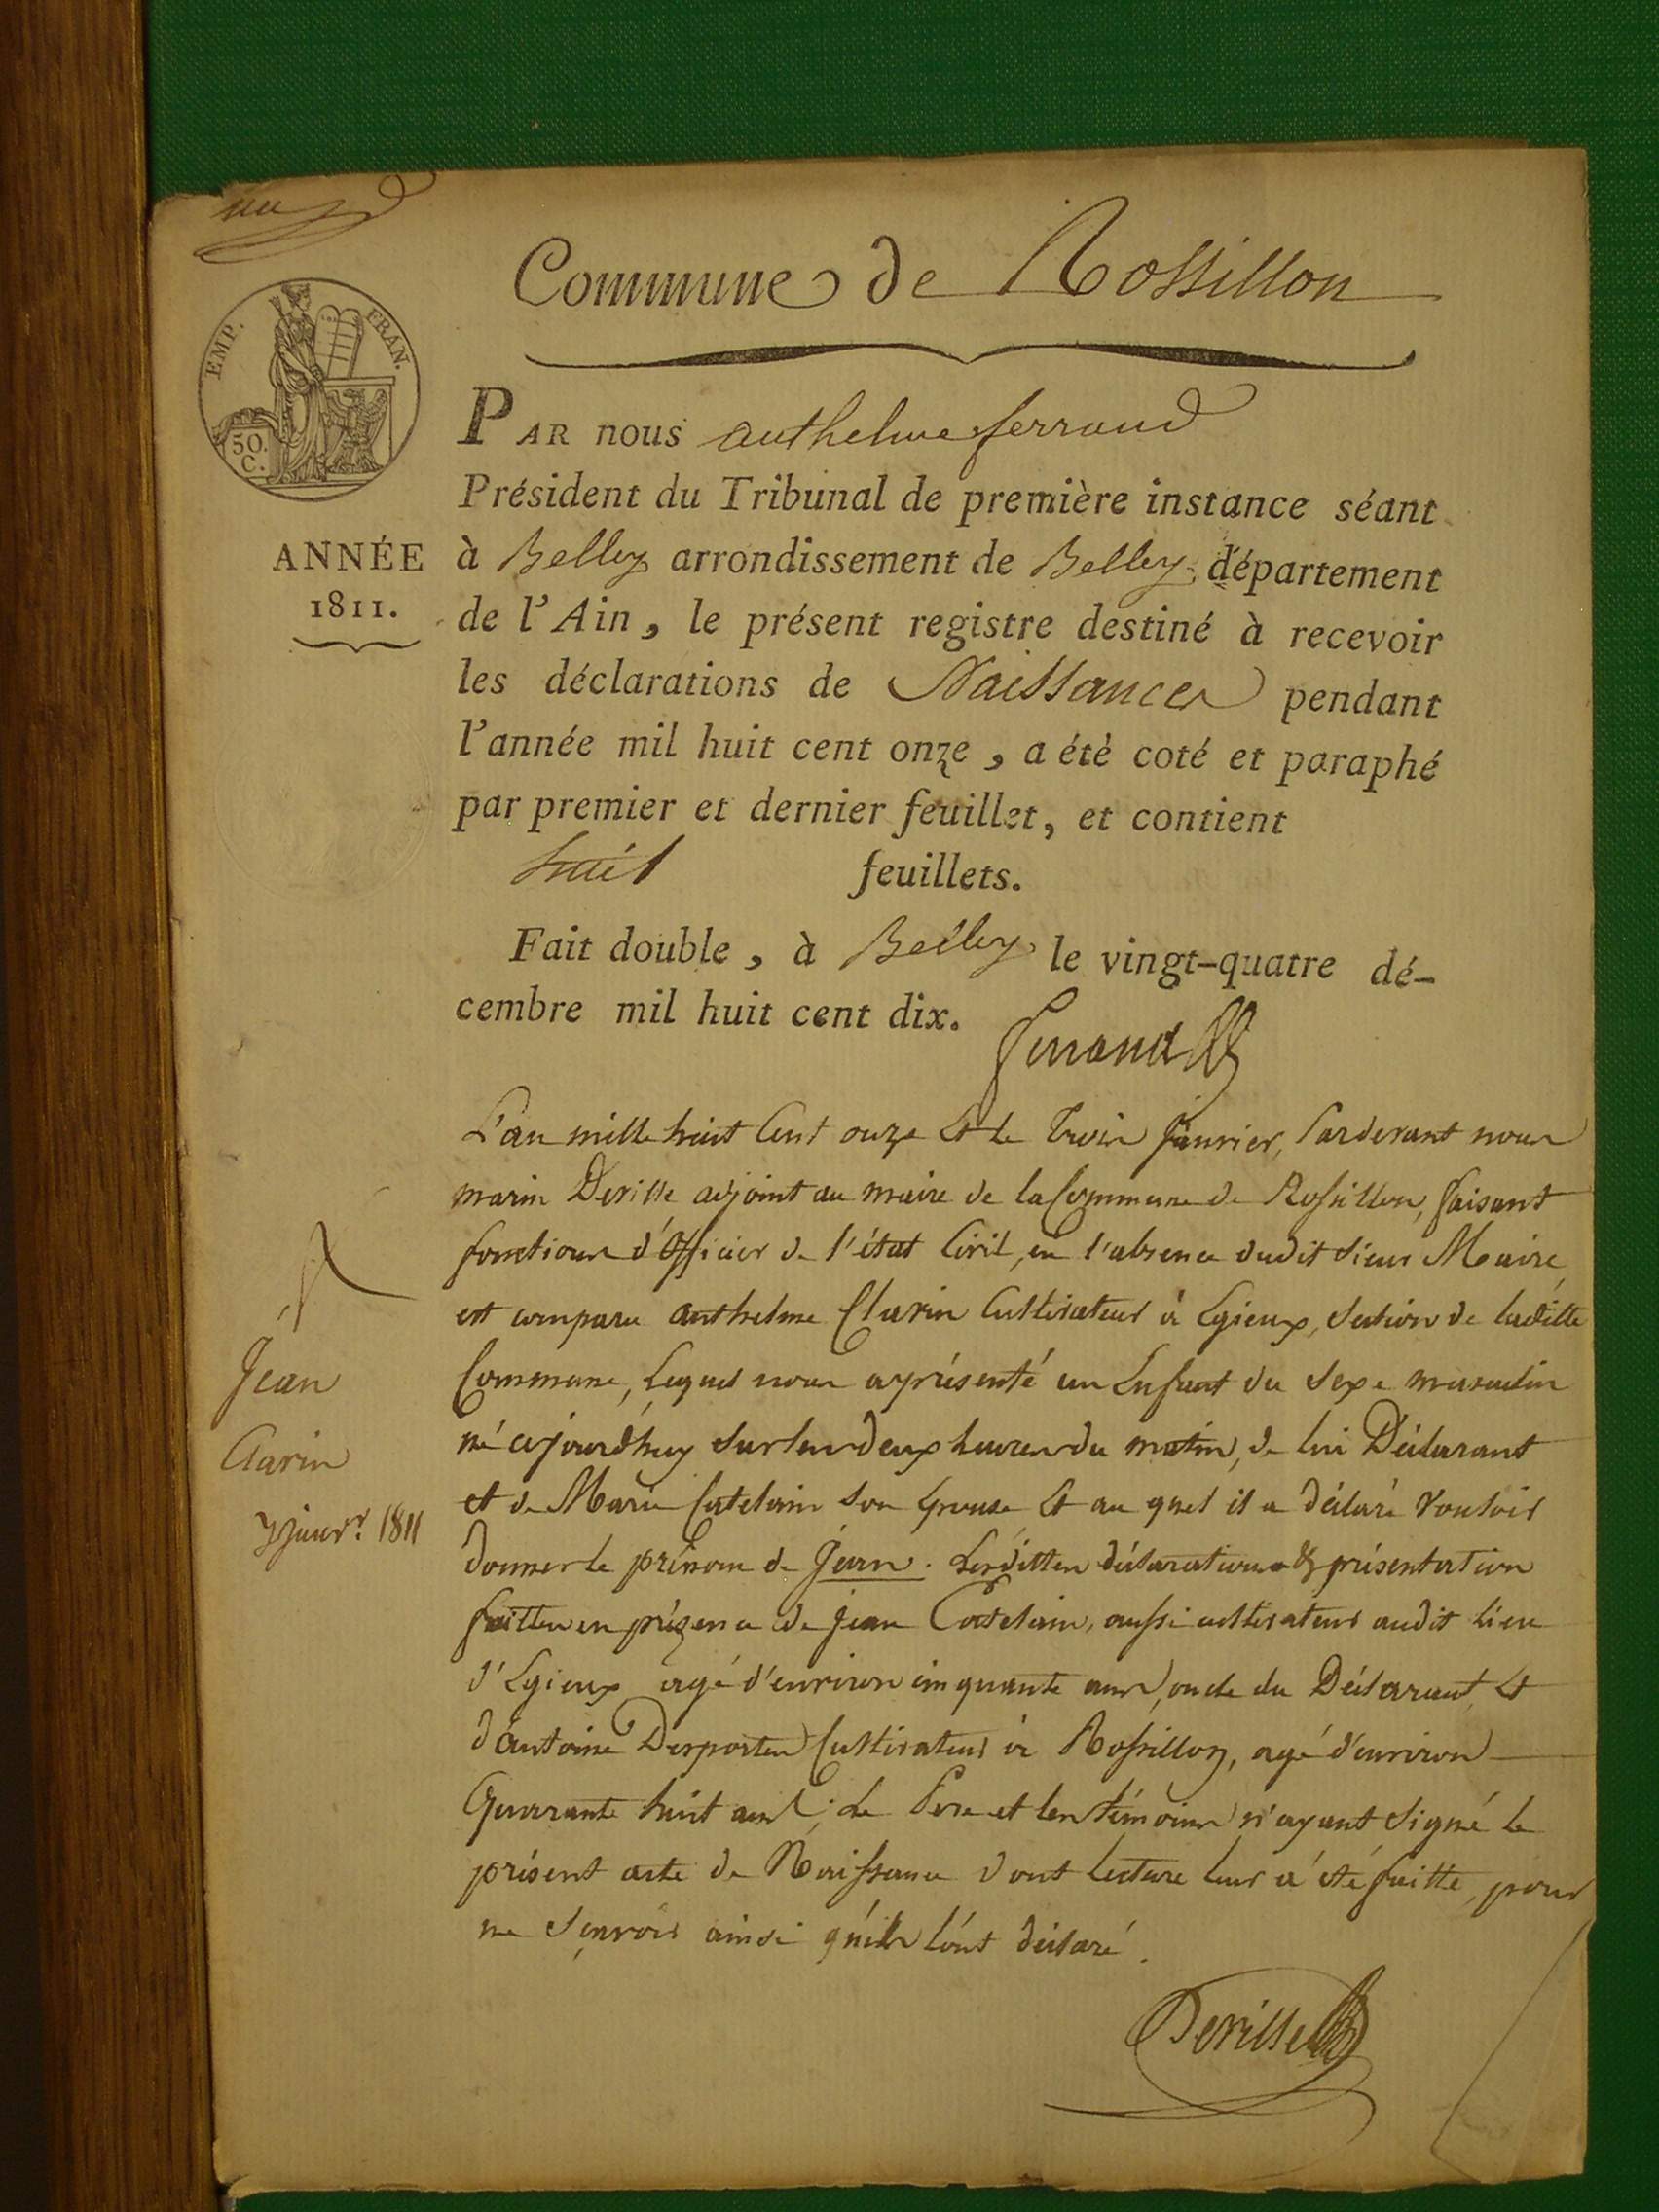 Commune de Rossillon
EMP. FRAN.
50. C.
ANNÉE
1811.
PAR nous authelme ferrand
Président du Tribunal de première instance séant
à Belley arrondissement de Belley département
de l'Ain, le présent registre destiné à recevoir
les déclarations de Naissances pendant
l'année mil huit cent onze, a été coté et paraphé
par premier et dernier feuillet, et contient
huit feuillets.
Fait double, à Belley le vingt-quatre dé-
cembre mil huit cent dix.
ferrand
Jean
Clarin
3 janvr. 1811
L'an mille huit Cent onze Et le trois Janvier, Pardevant nous
marin Deville adjoint au maire de la Commune de Rossillon, faisant
fonctions d'Officier de l'état Civil, en l'absence dudit sieur Maire,
est comparu anthelme Clarin Cultivateur à Egieux, section de laditte
Commune, Lequel nous a présenté un Enfant du sexe masculin
né ajourd'huy sur les deux heures du matin, de lui Déclarant
et de Marie Catelain son Epouse Et au quel il a déclaré vouloir
donner le prénom de Jean. Lesdittes déclaration & présentation
faittes en prézence de Jean Catelain, aussi cultivateur audit lieu
d'Egieux agé d'environ cinquante ans, oncle du Déclarant, Et
d'antoine Desportes Cultivateur à Rossillon, agé d'environ
Quarante huit ans; Le Pere et les témoins n'ayant signé le
présent acte de Naissance dont lecture leur a été faitte, pour
ne sçavoir ainsi qu'ils l'ont déclaré.
Deville